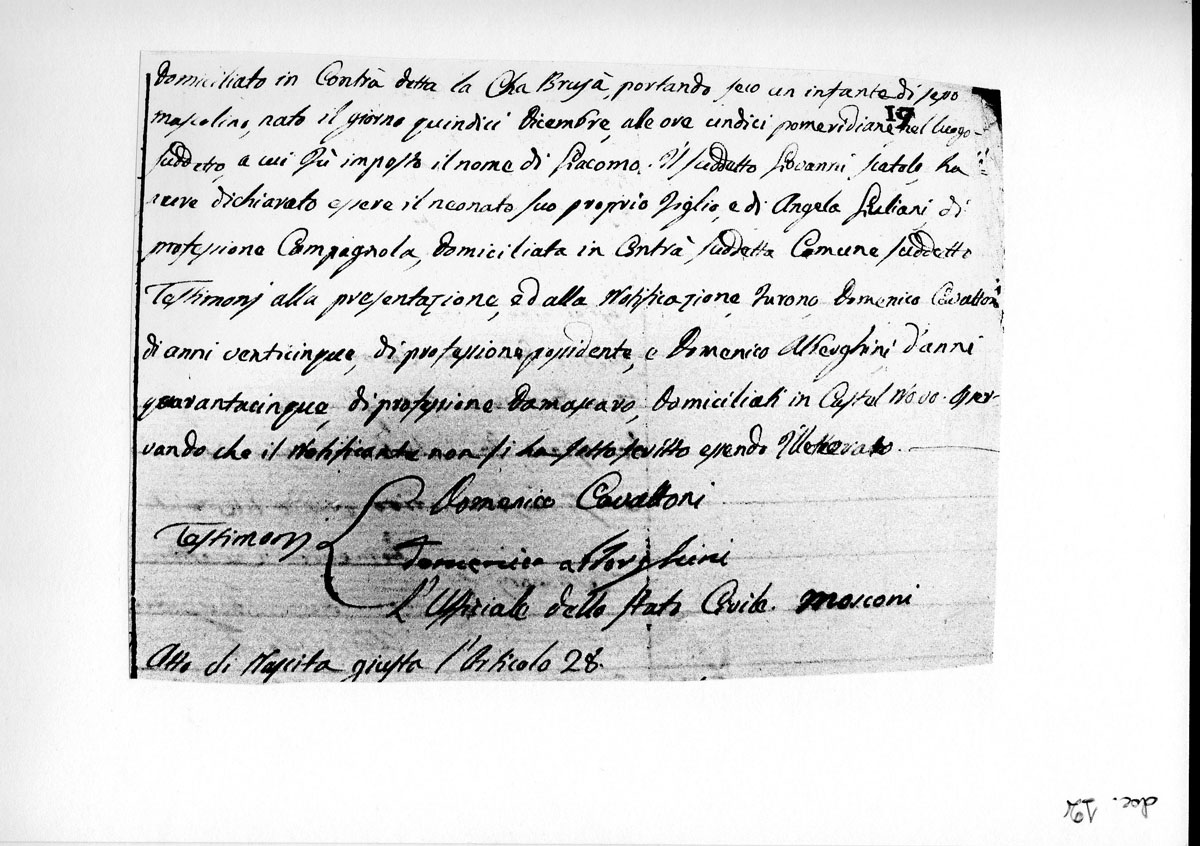 domiciliato in Contrà detta la Cha Brusà, portando seco un infante di sesso
19
mascolino, nato il giorno quindici Dicembre, alle ore undici pomeridiane, nel luogo
suddetto, a cui fù imposto il nome di Giacomo. Il suddetto Giovanni Scatolo, ha
avere dichiarato essere il neonato suo proprio figlio, e di Angela Giuliani di
professione Campagnola, domiciliata in Contrà suddetta Comune suddetto
Testimonj alla presentazione, ed alla Notificazione, furono, Domenico Cavattoni
di anni venticinque, di professione possidente, e Domenico Alberghini d'anni
quarantacinque, di professione Damascaro, domiciliati in Castel Novo. Osser-
vando che il Notificante non si ha sottoscritto essendo Illeterato.
Domenico Cavattoni
Testimonj
Domenico alberghini
L'Ufficiale dello Stato Civile. Mosconi
Atto di Nascita giusta l'Articolo 28.
doc. 12